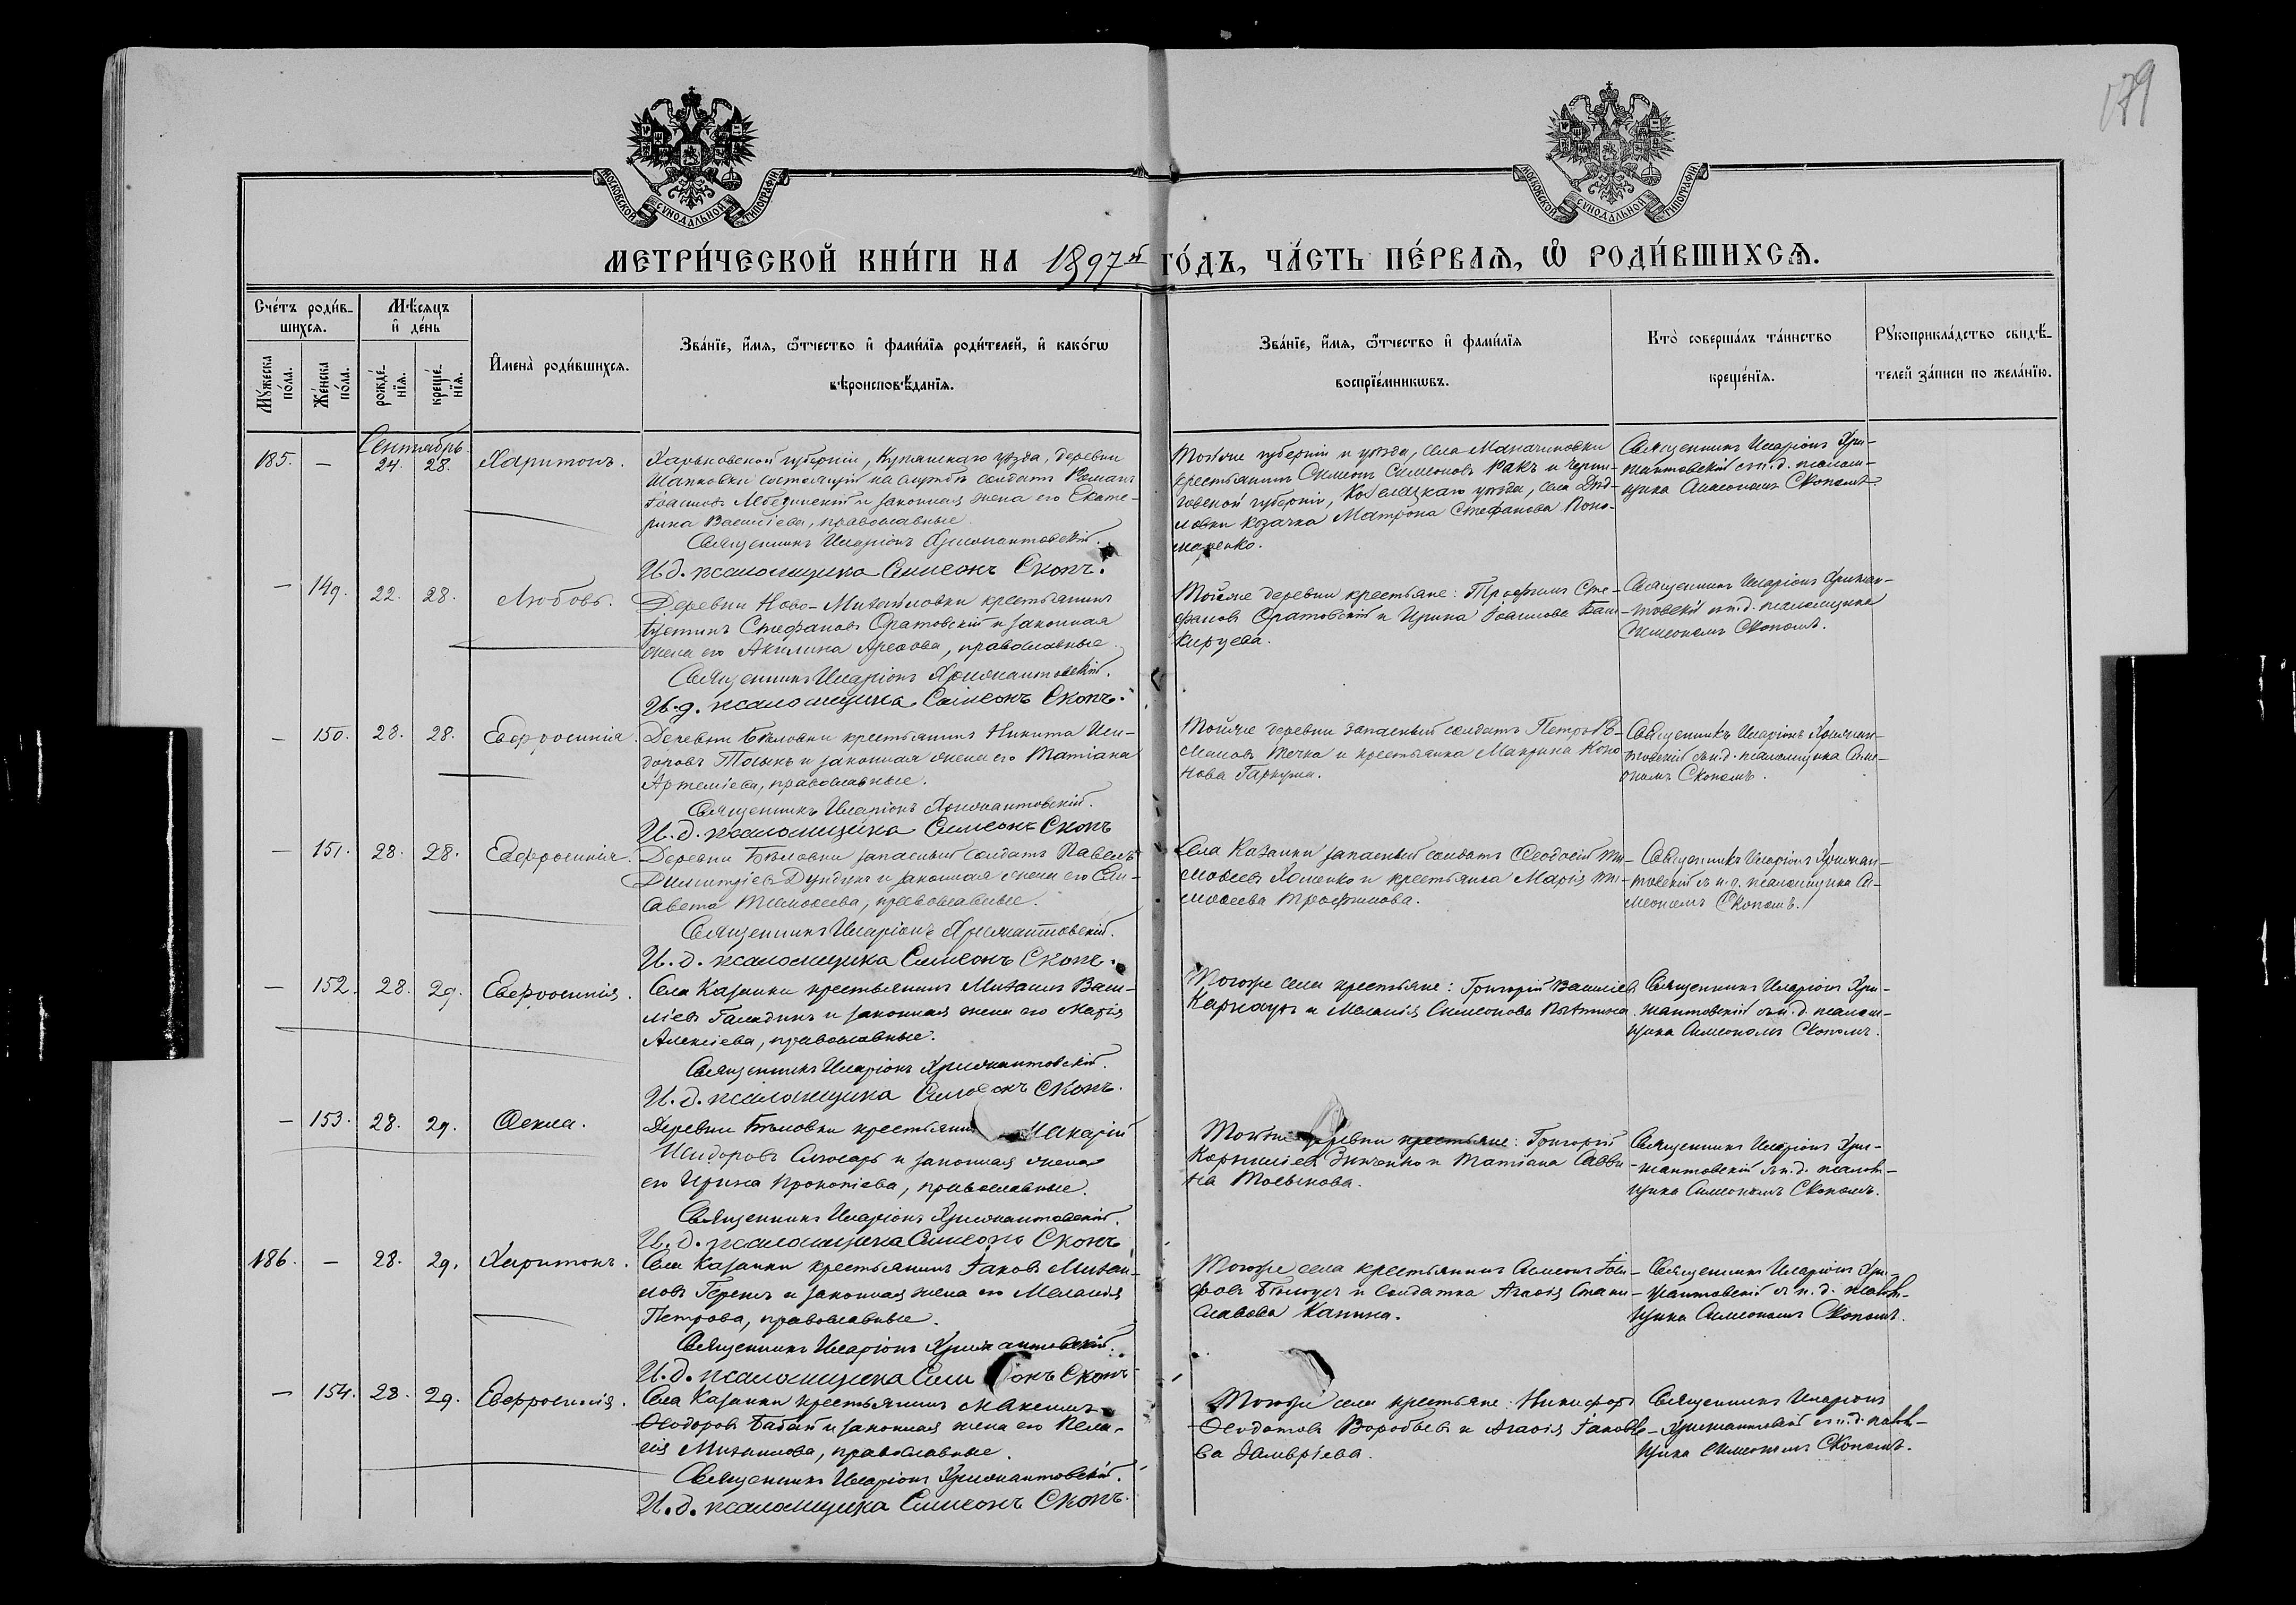 179
МОСКОВСКОЙ СѴНОДАЛЬНОЙ ТИПОГРАФІИ
МОСКОВСКОЙ СѴНОДАЛЬНОЙ ТИПОГРАФІИ
МЕТРИ́ЧЕСКОЙ КНИ́ГИ НА 1897й ГО́ДЪ, ЧА́СТЬ ПЕ́РВАѦ, Ѽ РОДИ́ВШИХСѦ.
Сче́тъ роди́в-
шихсѧ.
Мѣ́сѧцъ
и҆ де́нь
Мꙋ́жеска
по́ла.
Же́нска
по́ла.
рожде́-
нїѧ.
креще́-
нїѧ.
И҆мена̀ роди́вшихсѧ.
Зва́нїе, и҆́мѧ, ѻ҆́тчество и҆ фами́лїѧ роди́телей, и҆ како́гѡ
вѣроисповѣ́данїѧ.
Зва́нїе, и҆́мѧ, ѻ҆́тчество и҆ фами́лїѧ
воспрїе́мникѡвъ.
Кто̀ соверша́лъ та́инство
креще́нїѧ.
Рꙋкоприкла́дство свидѣ́-
телей за́писи по жела́нїю.
Сентябрь
185. — 24. 28. Харитонъ.
Харьковской губерніи, Купянскаго уѣзда, деревни
состоящій на службѣ солдатъ Романъ
и законная жена его Екате-
рина Василіева, православные.
Священникъ Иларіонъ
И. д. псаломщика Симеонъ Скопъ.
Той же губерніи и уѣзда, села
крестьянинъ Симеонъ Симеоновъ Ракъ и Черни-
говской губерніи, Козелецкаго уѣзда, села
козачка Матрона Стефанова Поно-
маренко.
Священникъ Иларіонъ
съ и. д. псалом-
щика Симеономъ Скопомъ.
— 149. 22. 28. Любовь.
Деревни Ново-Михайловки крестьянинъ
Іустинъ Стефановъ Оратовскій и законная
жена его Акилина Арефова, православные.
Священникъ Иларіонъ
И. д. псаломщика Симеонъ Скопъ.
Той же деревни крестьяне: Трофимъ Сте-
фановъ Оратовскій и Ирина Іоаннова Баш-
кирцева.
Священникъ Иларіонъ
съ и. д. псаломщика
Симеономъ Скопомъ.
— 150. 28. 28. Евфросинія.
Деревни Бѣловки крестьянинъ Никита Иси-
доровъ и законная жена его Татіана
Артеміева, православные.
Священникъ Иларіонъ
И. д. псаломщика Симеонъ Скопъ
Той же деревни запасный солдатъ Петръ
и крестьянка Макрина Коно-
нова Гаркуша.
Священникъ Иларіонъ
съ и. д. псаломщика Симе-
ономъ Скопомъ.
— 151. 28. 28. Евфросинія.
Деревни Бѣловки запасный солдатъ Павелъ
Димитріевъ Дундукъ и законная жена его Ели-
савета Тимофеева, православные.
Священникъ Иларіонъ
И. д. псаломщика Симеонъ Скопъ.
Села Казанки запасный солдатъ Феодосій Ти-
мофеевъ Хоменко и крестьянка Марія Ти-
мофеева Трофимова.
Священникъ Иларіонъ
съ и. д. псаломщика Си-
меономъ Скопомъ.
— 152. 28. 29. Евфросинія.
Села Казанки крестьянинъ Михаилъ Васи-
ліевъ и законная жена его Марія
Алексіева, православные.
Священникъ Иларіонъ
И. д. псаломщика Симеонъ Скопъ.
Того же села крестьяне: Григорій Василіевъ
Карнаухъ и Меланія Симеонова
Священникъ Иларіонъ
съ и. д. псалом-
щика Симеономъ Скопомъ.
— 153. 28. 29. Ѳекла.
Деревни Бѣловки крестьянинъ Макарій
Исидоровъ Слюсарь и законная жена
его Ирина Прокопіева, православные.
Священникъ Иларіонъ
И. д. псаломщика Симеонъ Скопъ
Той же деревни крестьяне: Григорій
Корниліевъ Зинченко и Татіана Савви-
на
Священникъ Иларіонъ
съ и. д. псалом-
щика Симеономъ Скопомъ.
186. — 28. 29. Харитонъ.
Села Казанки крестьянинъ Іаковъ Михаи-
ловъ и законная жена его Меланія
Петрова, православные.
Священникъ Иларіонъ
И. д. псаломщика Симеонъ Скопъ
Того же села крестьянинъ Симеонъ
и солдатка Агафія Стани-
славова Капина.
Священникъ Иларіонъ
съ и. д. псалом-
щика Симеономъ Скопомъ.
— 154. 28. 29. Евфросинія.
Села Казанки крестьянинъ Максимъ
Ѳеодоровъ Бабай и законная жена его Пела-
гія Михаилова, православные.
Священникъ Иларіонъ
И. д. псаломщика Симеонъ Скопъ.
Того же села крестьяне: Никифоръ
Ѳеодотовъ Воробьевъ и Агафія Іаковле-
ва
Священникъ Иларіонъ
съ и. д. псалом-
щика Симеономъ Скопомъ.